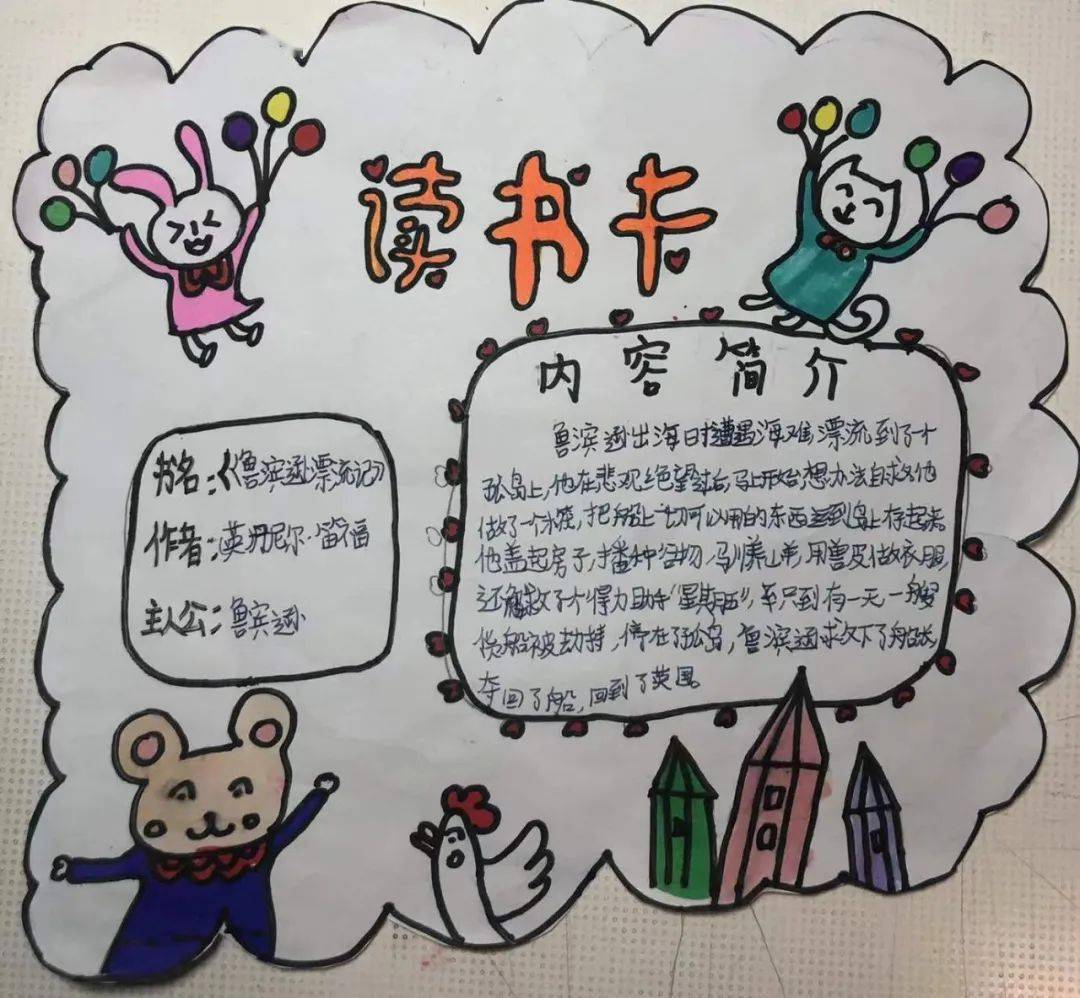 读书卡
书名:《鲁滨逊漂流记》
作者:英丹尼尔·笛福
主人公:鲁滨逊
内容简介
鲁滨逊出海时遭遇海难漂流到了个
孤岛上,他在悲观绝望过后,马上开始想办法自救他
做了一个木筏,把船上一切可以用的东西运到岛上存起来
他盖起房子,播种谷物,驯养山羊,用兽皮做衣服,
还解救了个得力助手“星期五”,直到有一天一艘
货船被劫持,停在了孤岛,鲁滨逊救下了船长,
夺回了船,回到了英国。